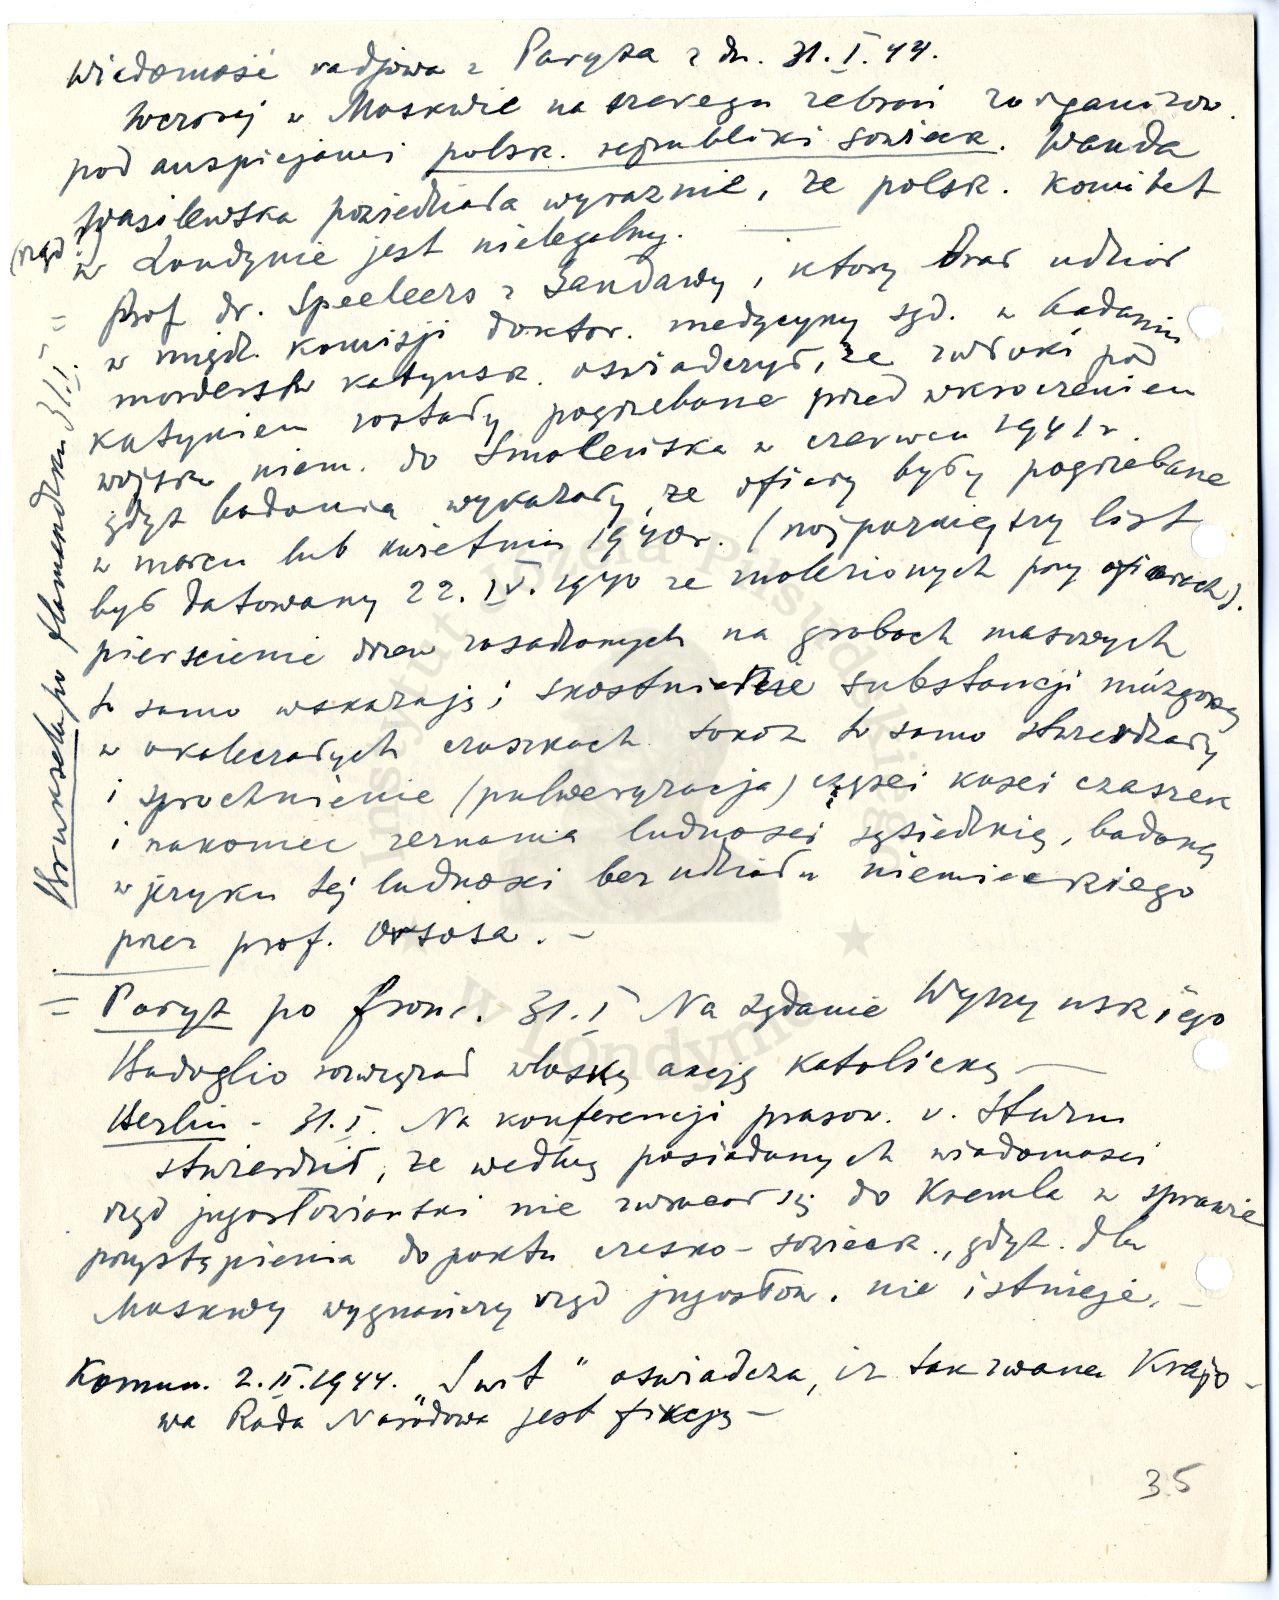 Wiadomość radjowa z Paryża z dn. 31.I.44.
Wczoraj w Moskwie na szeregu zebrań zorganizow.
pod auspicjami polsk. republiki sowieck. Wanda
Wasilewska powiedziała wyraźnie, że polsk. Komitet
(rząd)
w Londynie jest nielegalny.
Bruksela po flamandzku 31/I. =
Prof dr. Speeleers z Gandawy, który brał udział
w międz. komisji doktor. medycyny sąd. w badaniu
morderstw katyńsk. oświadczył, że zwłoki pod
Katyniem zostały pogrzebane przed wkroczeniem
wojsk niem. do Smoleńska w czerwcu 1941 r.
gdyż badania wykazały, że ofiary były pogrzebane
w marcu lub kwietniu 1940r. (najpóźniejszy list
był datowany 22.IV.1940 ze znalezionych przy ofiarach).
pierścienie drzew zasadzonych na grobach masowych
to samo wskazują; skostnienie substancji mózgowej
w okaleczałych czaszkach. tokoż to samo stwierdzały
i spróchnienie (pulweryzacja) części kości czaszek
i nakoniec zeznania ludności sąsiedniej, badanej
w języku tej ludności bez udziału niemieckiego
przez prof. Orsósa. –
= Paryż po franc. 31.I Na żądanie Wyszyńskiego
Badoglio rozwiązał włoską akcję katolicką —
Berlin - 31.I. Na konferencji prasow. v. Sturm
stwierdził, że według posiadanych wiadomości
rząd jugosłowiański nie zwracał się do Kremla w sprawie
przystąpienia do paktu czesko-sowieck., gdyż dla
Moskwy wygnańczy rząd jugosłow. nie istnieje. –
Komun. 2.II.1944. „Świt" oświadcza, iż tak zwana Krajo-
wa Rada Narodowa jest fikcją –
35
Instytut Józefa Piłsudskiego
★ w Londynie ★